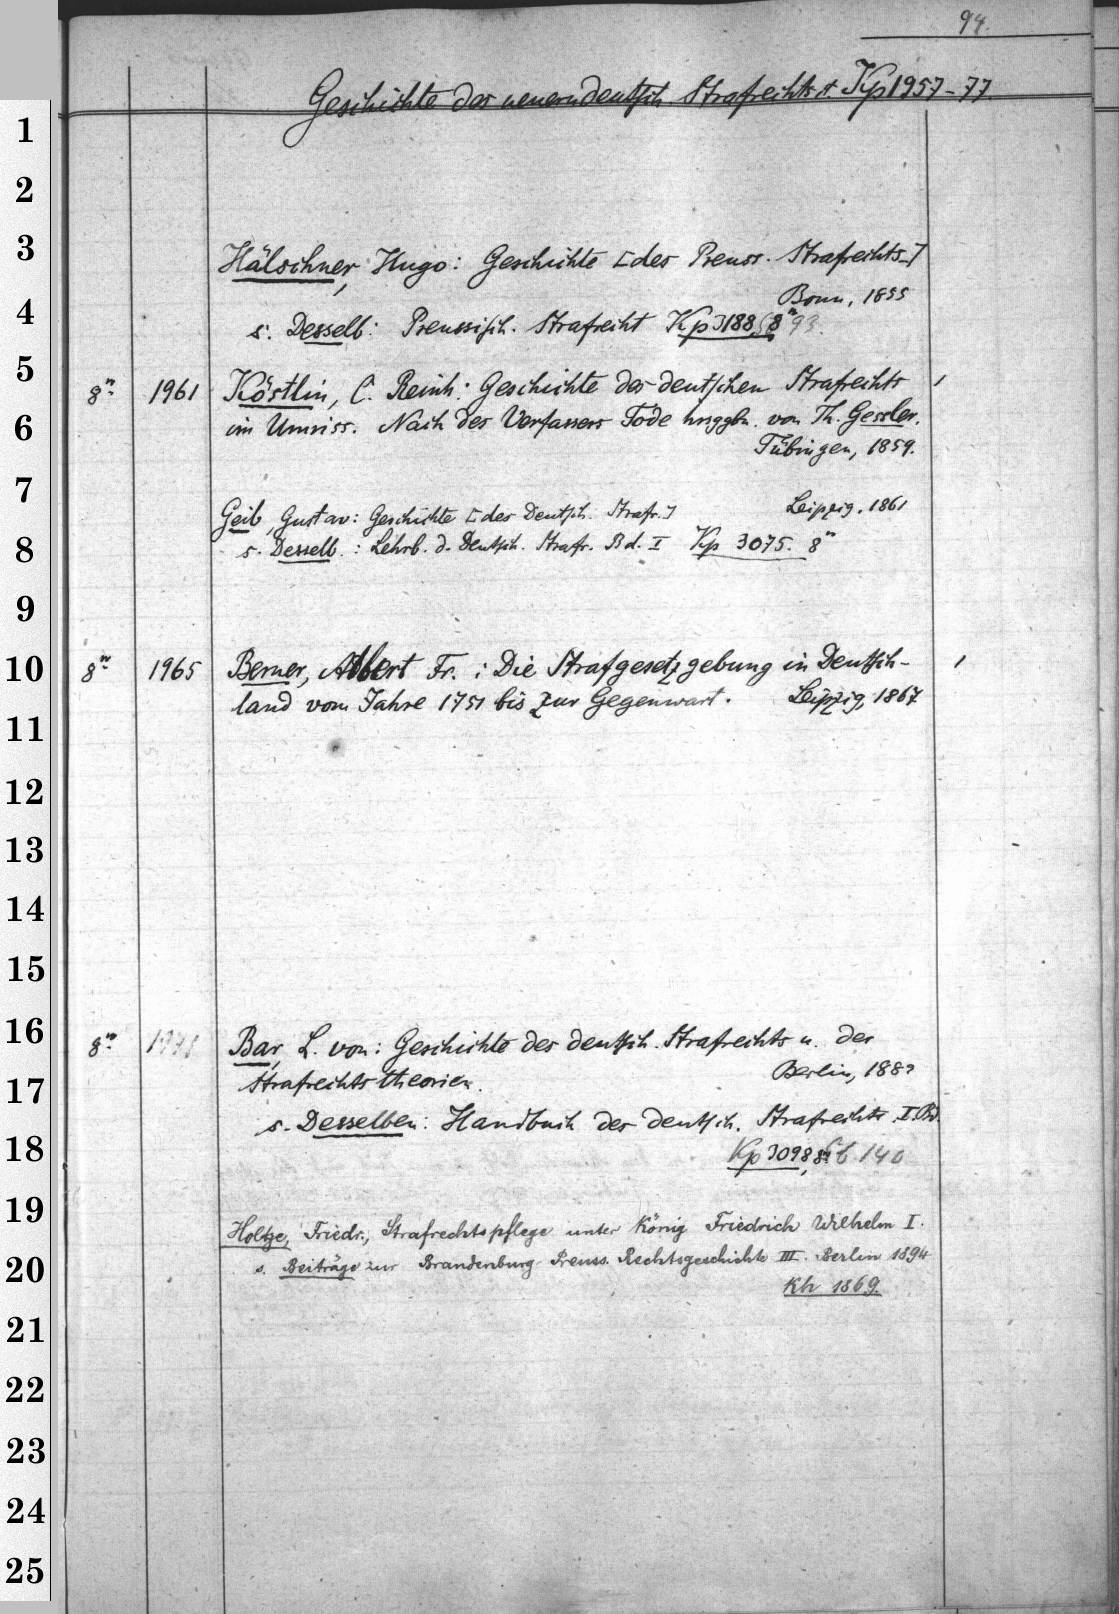 94.
Geschichte des neuern deutsch. Strafrechts. Kp 1957-77.
1
2
3
Hälschner, Hugo: Geschichte [des Preuss. Strafrechts]
Bonn, 1855
4
s. Desselb: Preussisch. Strafrecht Kp 3188, 8n 93.
5
8n 1961 Köstlin, C. Reinh: Geschichte des deutschen Strafrechts
6
im Umriss. Nach des Verfassers Tode hrsggbn. von Th. Gessler.
Tübingen, 1859.
7
Geib, Gustav: Geschichte [des Deutsch. Strafr.] Leipzig. 1861
8
s. Desselb.: Lehrb. d. Deutsch. Strafr. Bd. I Kp 3075. 8n
9
10
8n 1965 Berner, Albert Fr.: Die Strafgesetzgebung in Deutsch-
land vom Jahre 1751 bis zur Gegenwart. Leipzig, 1867
11
12
13
14
15
16
8n Bar, L. von: Geschichte des deutsch. Strafrechts u. der
17
Strafrechtstheorien. Berlin, 1882
s. Desselben: Handbuch des deutsch. Strafrechts. I. Bd.
18
Kp 3098, 140
19
Holtze, Friedr., Strafrechtspflege unter König Friedrich Wilhelm I.
20
s. Beiträge zur Brandenburg. Preuss. Rechtsgeschichte III. Berlin 1894
Kh 1869.
21
22
23
24
25